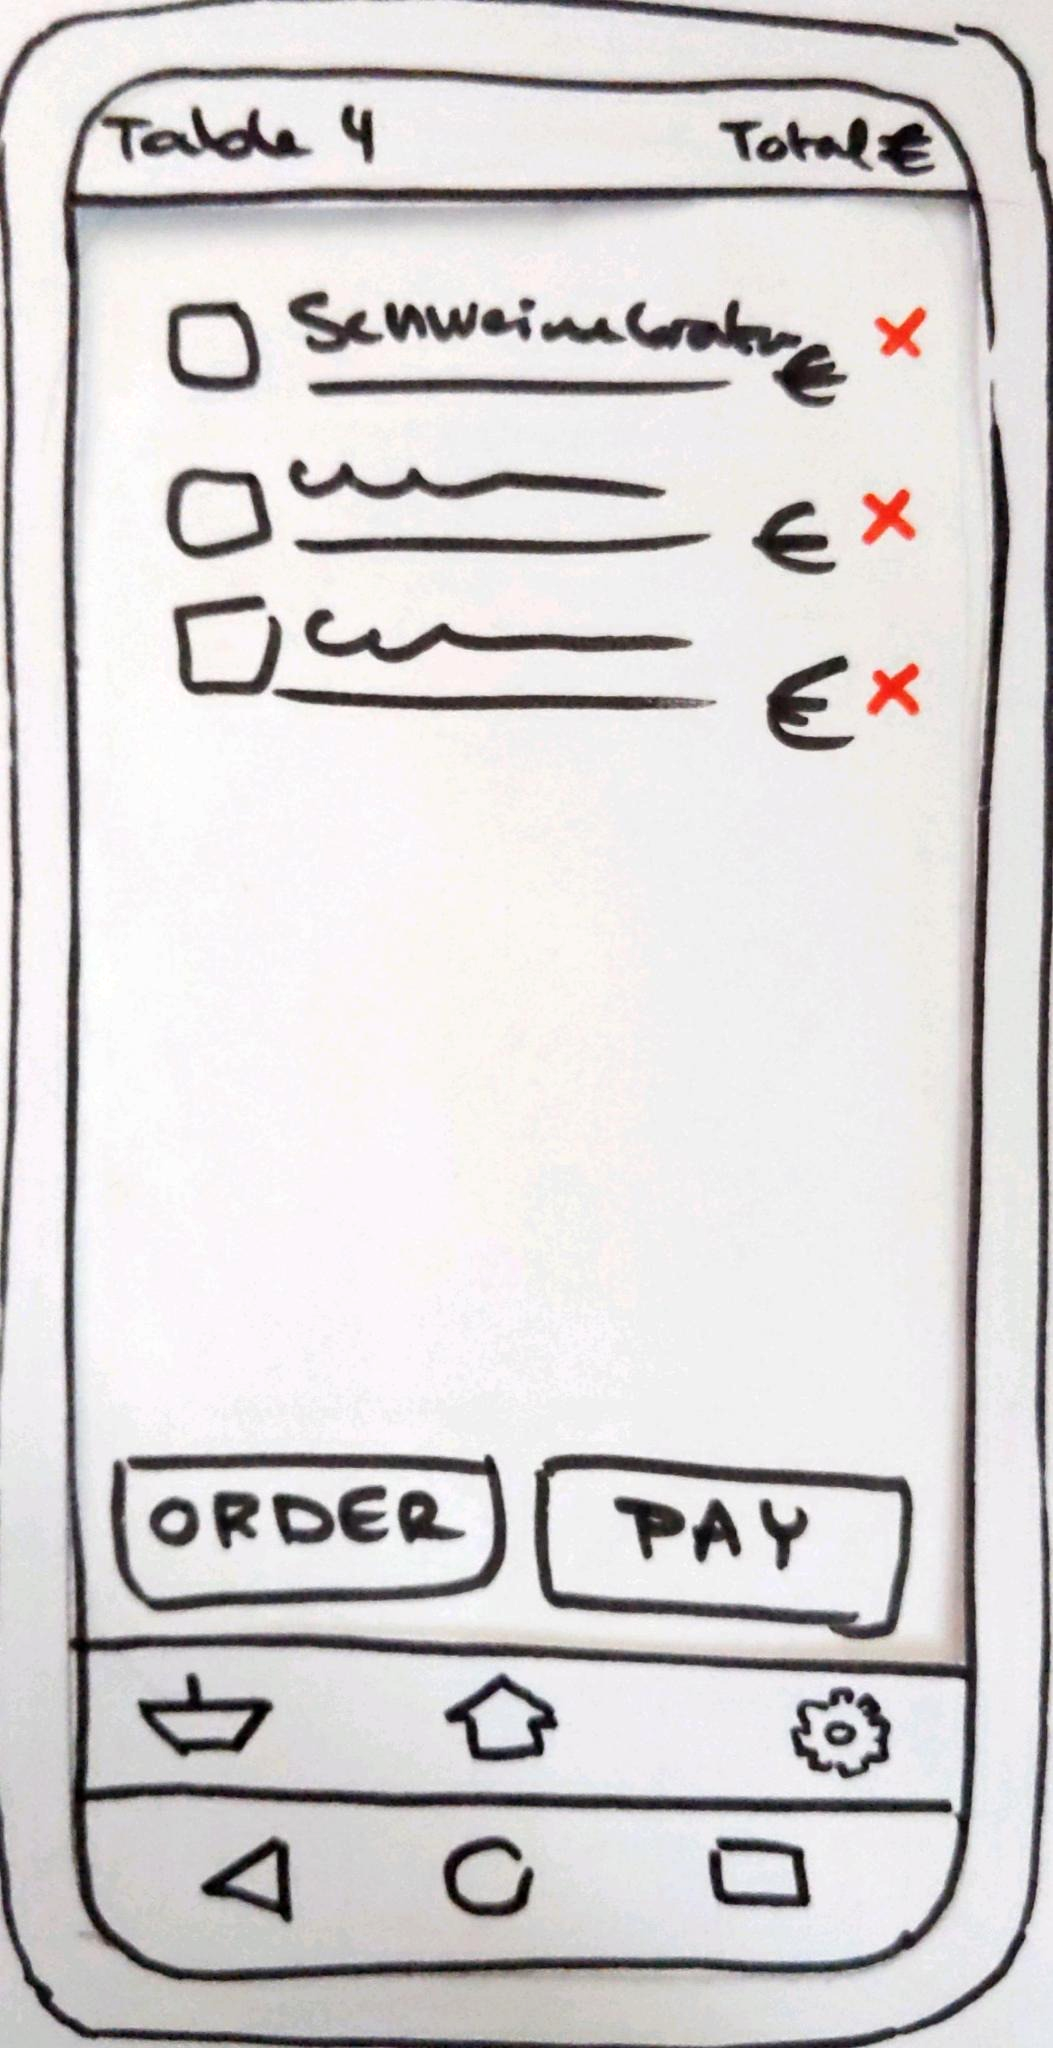 Table 4
Total €
Schweinebraten
€
€
€
ORDER
PAY